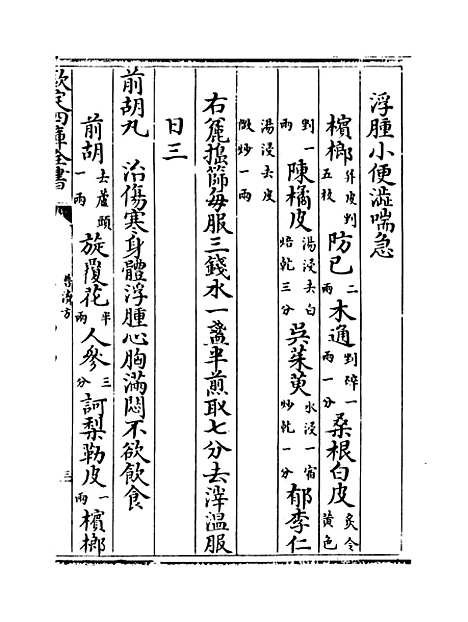 浮腫小便澁喘急
檳榔五枚并皮剉 防已二兩 木通剉碎一兩一分 桑根白皮炙令黄色
剉一兩 陳橘皮湯浸去白焙乾三分 吳茱萸水浸一宿炒乾一分 郁李仁
湯浸去皮微炒一兩
右麄擣篩每服三錢水一盞半煎取七分去滓温服
日三
前胡丸 治傷寒身體浮腫心胸滿悶不欲飲食
前胡去蘆頭一兩 旋覆花半兩 人參三分 訶梨勒皮一兩 檳榔
欽定四庫全書
普濟方
三